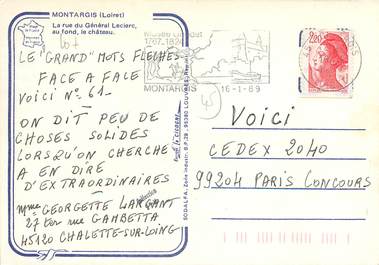 MONTARGIS (Loiret)
La rue du Général Leclerc,
au fond, le château.
LE "GRAND" MOTS FLÉCHÉS
FACE A FACE
VOICI N° 61-
ON DIT PEU DE
CHOSES SOLIDES
LORSQU'ON CHERCHE
A EN DIRE
D'EXTRAORDINAIRES
Mme GEORGETTE
27 Ter rue GAMBETTA
45120 CHALETTE-SUR-LOING
Musée Girodet
1767-1824
MONTARGIS
16-1-89
45
2,20
SODALFA, Zone Indust. B.P. 28 - 95380 LOUVRES
VOICI
CEDEX 2040
99204 PARIS CONCOURS